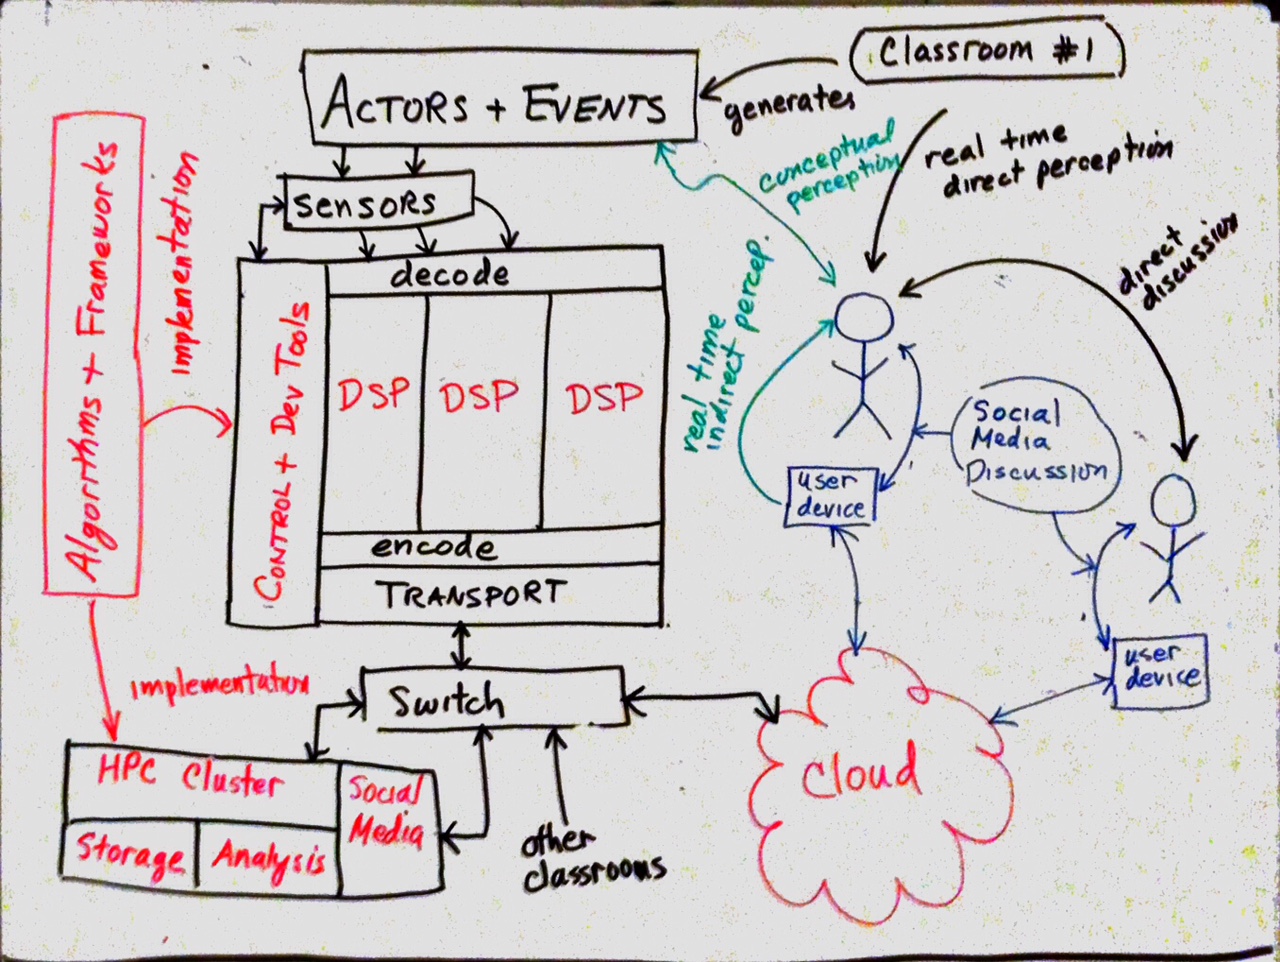 Classroom #1
ACTORS + EVENTS
generates
real time
direct perception
conceptual
perception
direct
discussion
Algorithms + Frameworks
implementation
sensors
decode
CONTROL + Dev Tools
DSP
DSP
DSP
real time
indirect percep.
Social
Media
Discussion
user
device
encode
TRANSPORT
user
device
implementation
Switch
HPC Cluster
Social
Media
Storage
Analysis
other
classrooms
Cloud